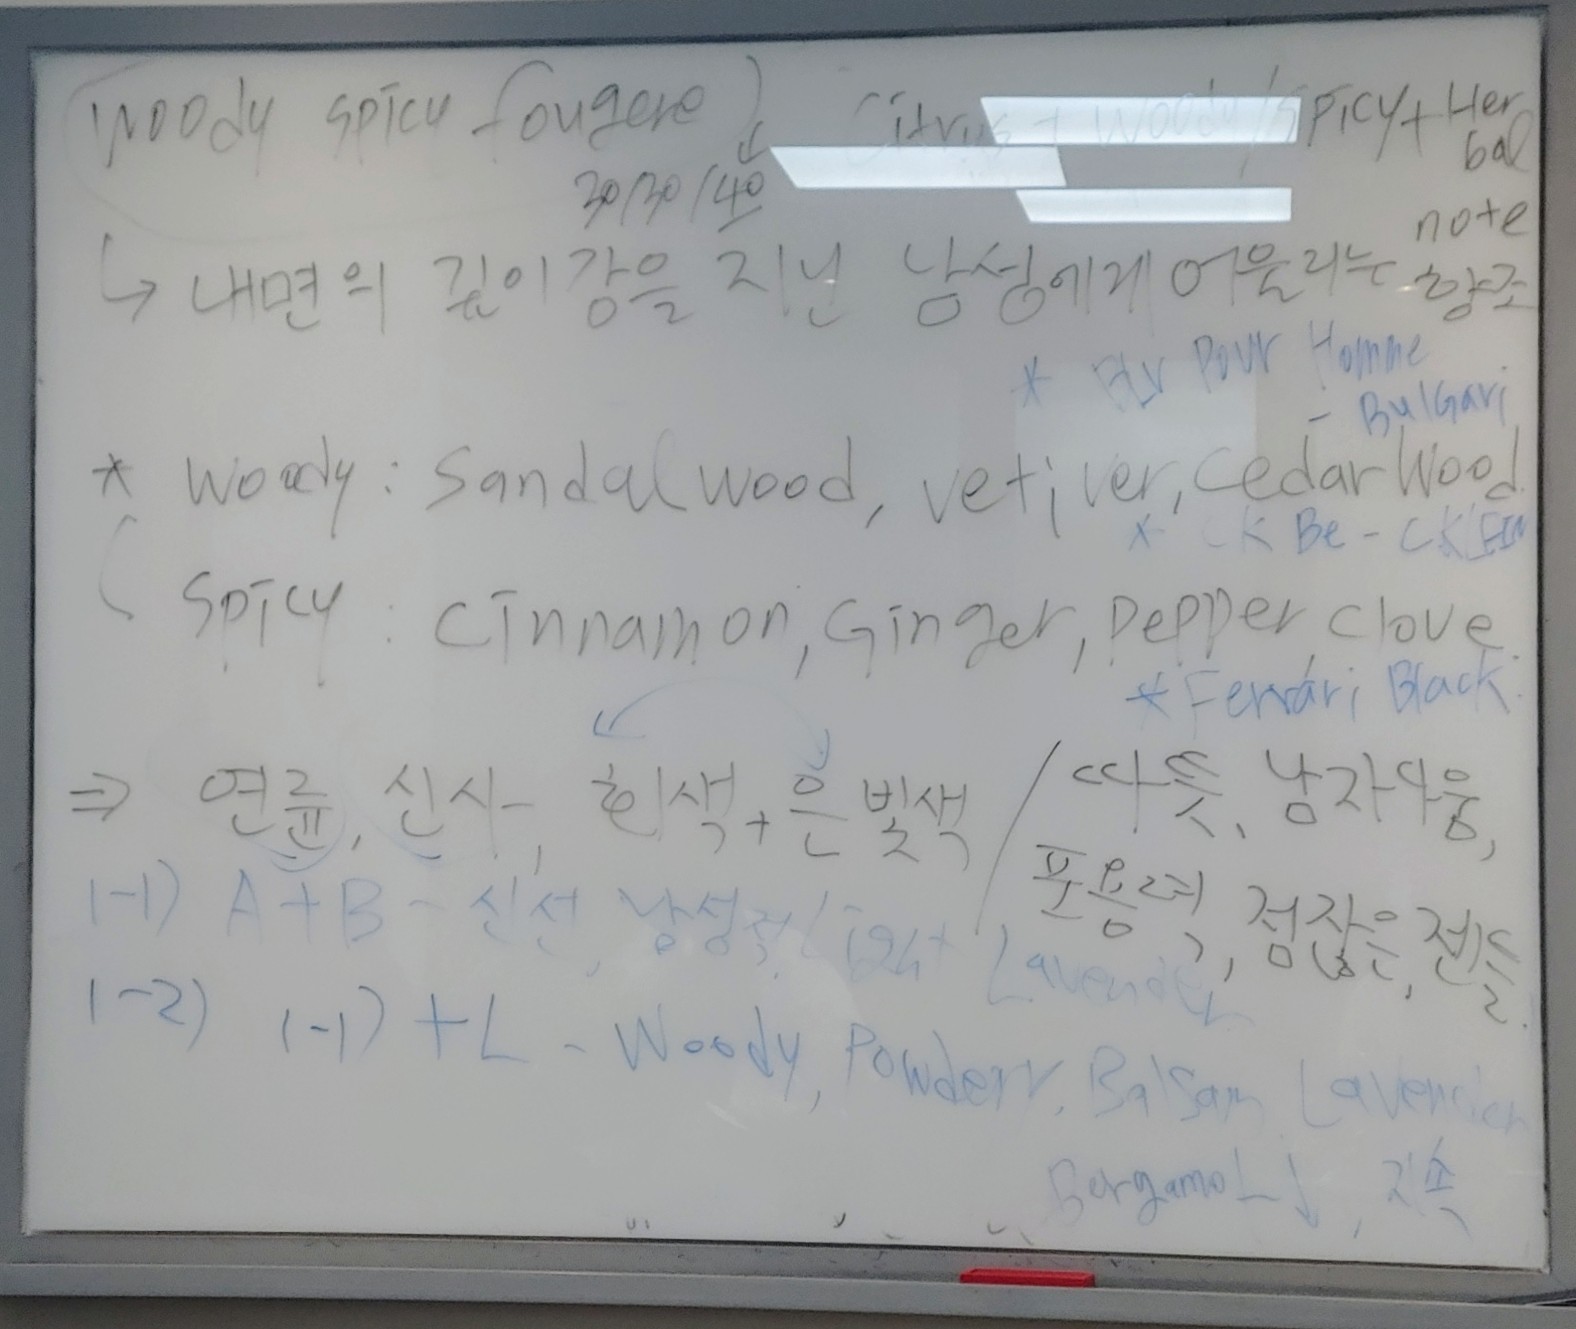 Woody spicy fougere) Citrus + Woody/Spicy+Her
bal
30/30/40
note
↳ 내면의 깊이감을 지닌 남성에게 어울리는 향조
* BLV Pour Homme
- Bulgari
* Woody : Sandalwood, vetiver, CedarWood.
* CK Be - CK
Spicy : Cinnamon, Ginger, Pepper, Clove.
* Ferrari Black.
⇒ 연륜, 신사, 회색 + 은빛색 / 따뜻, 남자다움,
포용력, 점잖은, 젠틀.
1-1) A+B - 신선, 남성적, Light Lavender
1-2) 1-1) + L - Woody, Powdery, Balsam Lavender
Bergamot↓, 지속